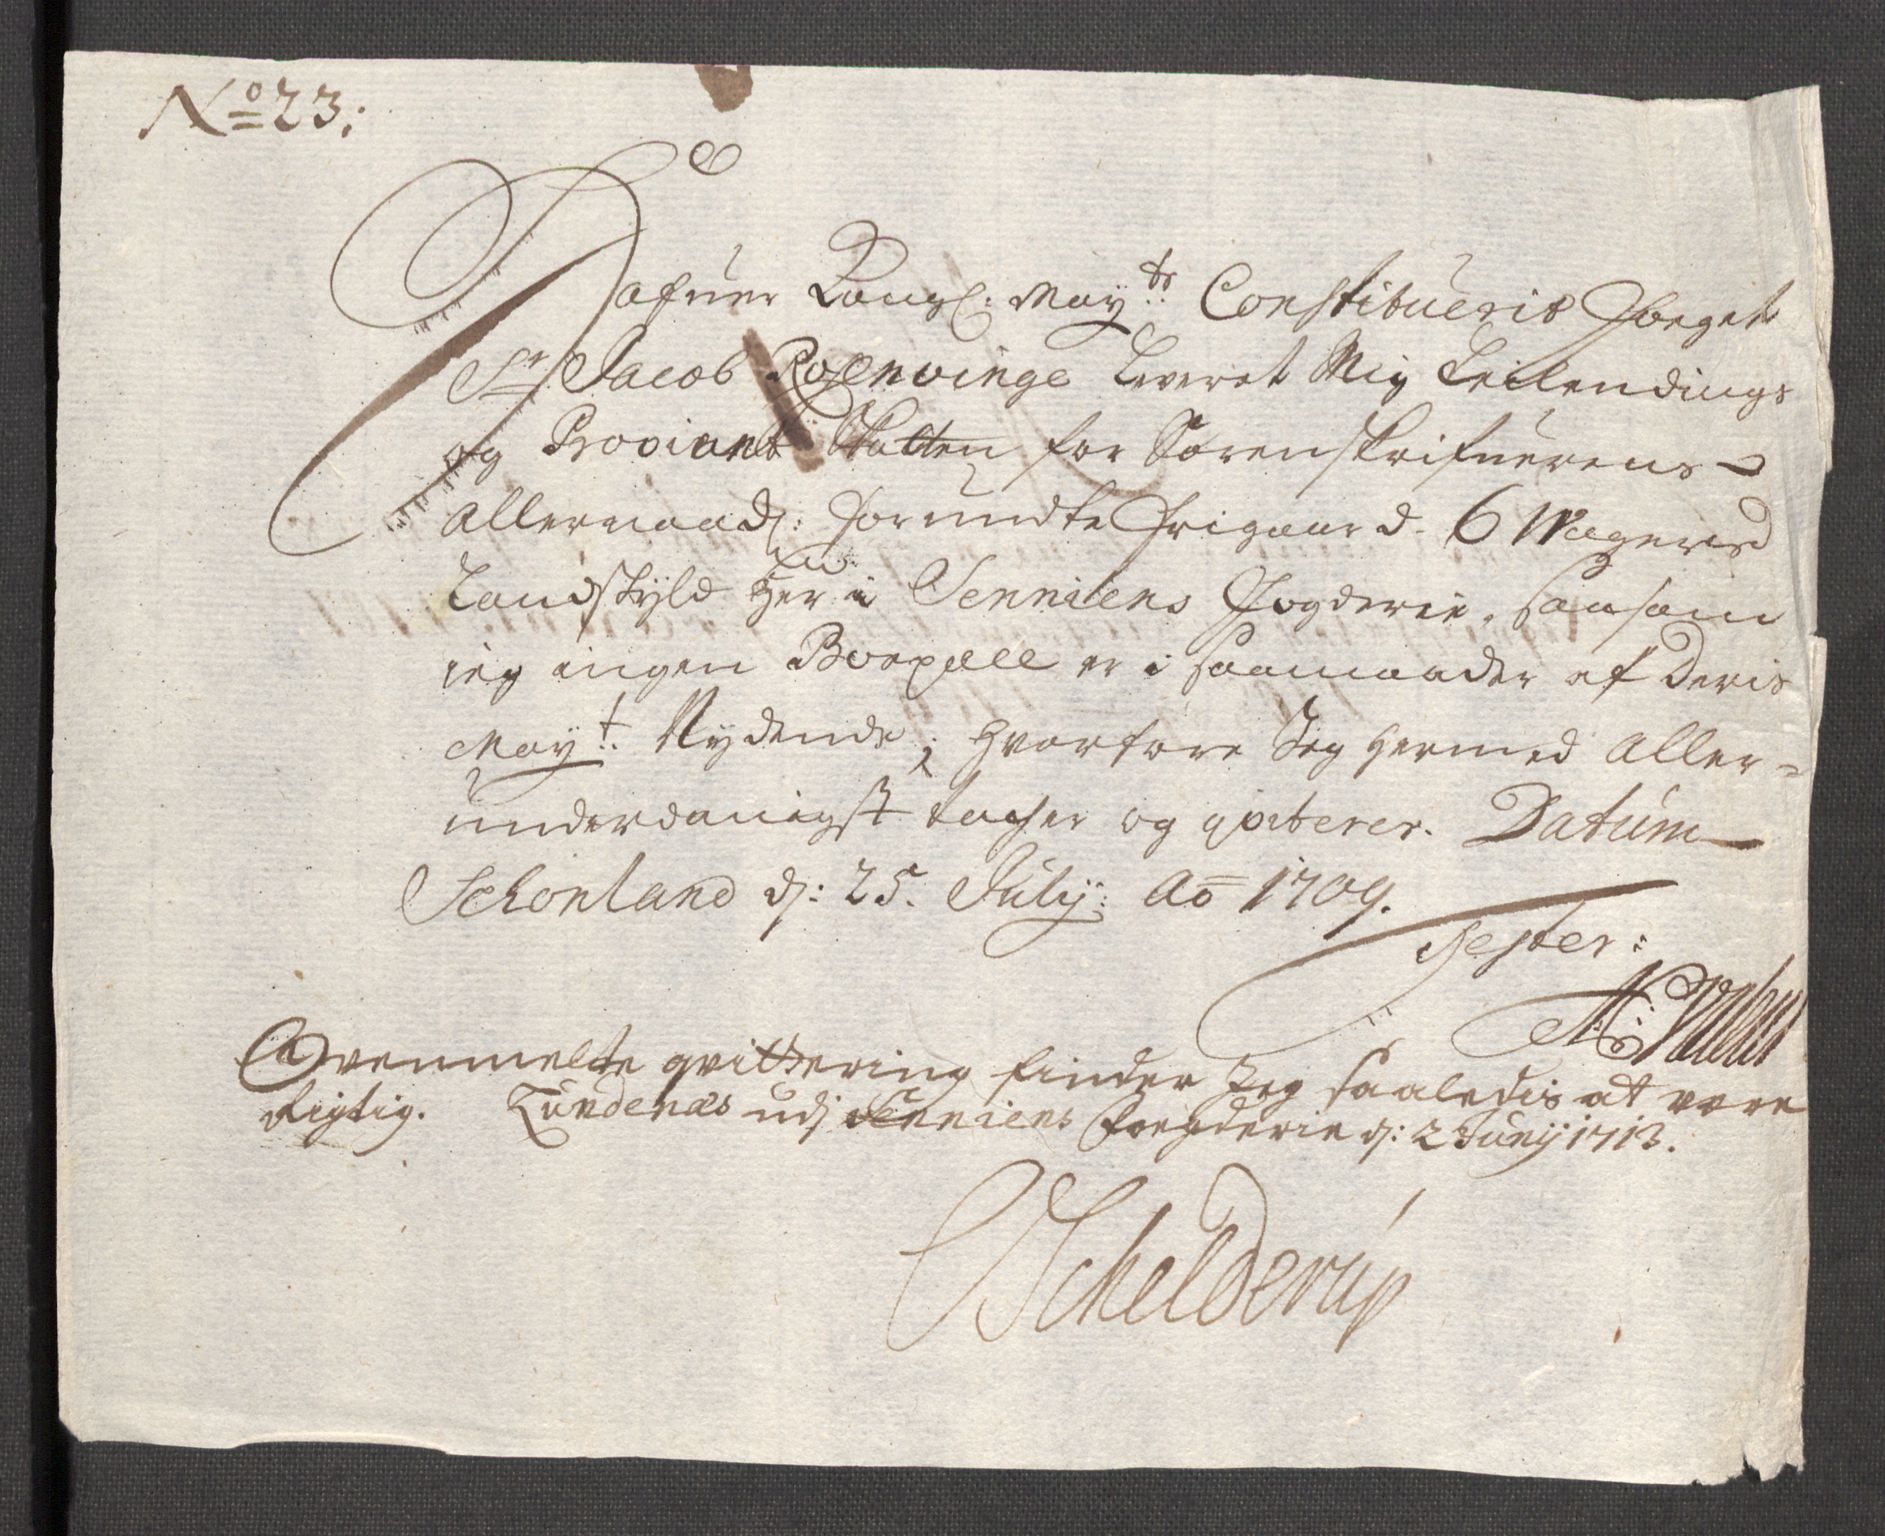 No 23:
Hafuer Kongl: Mayts: Constituerit Foeget
Sr. Jacob Rosenvinge Leveret Mig Leilendings
og Proviant Skatten for Sorenskrifuerens
Allernaadl: Forundte Frigaard 6 Wogers
Landskyld her i Senniens Fogderie, saasom
ieg ingen er i saamaader af Deris
Mayt: Nydende; Hvorfore Jeg hermed Aller-
underdanigst tacher og qviterer. Datum
Schonland d: 25. July: Ao 1709.
Tester:
Ovenmelte qvittering finder Jeg saaledis at være
Rigtig. Lundenæs udj Senniens Foegderie d: 2 Junij 1713.
Schelderup